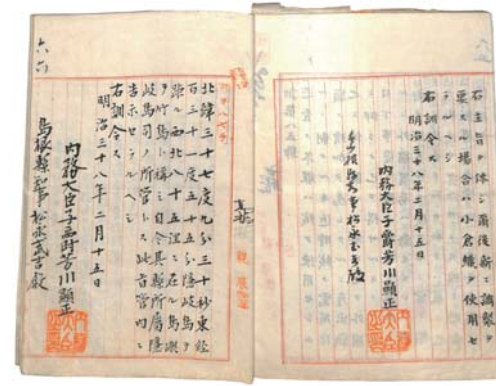 右主旨ヲ体シ爾後新ニ調製ヲ
要スル場合ハ小倉織ヲ使用セ
シムヘシ
右訓令ス
明治三十八年二月十五日
内務大臣子爵芳川顕正
島根縣知事松永武吉殿
六六
北緯三十七度九分三十秒東経
百三十一度五十五分隠岐島ヲ
距ル西北八十五浬ニ在ル島嶼
ヲ竹島ト称シ自今其縣所属隠
岐島司ノ所管トス此旨管内ニ
告示セラルヘシ
右訓令ス
明治三十八年二月十五日
内務大臣子爵芳川顕正
島根縣知事松永武吉殿